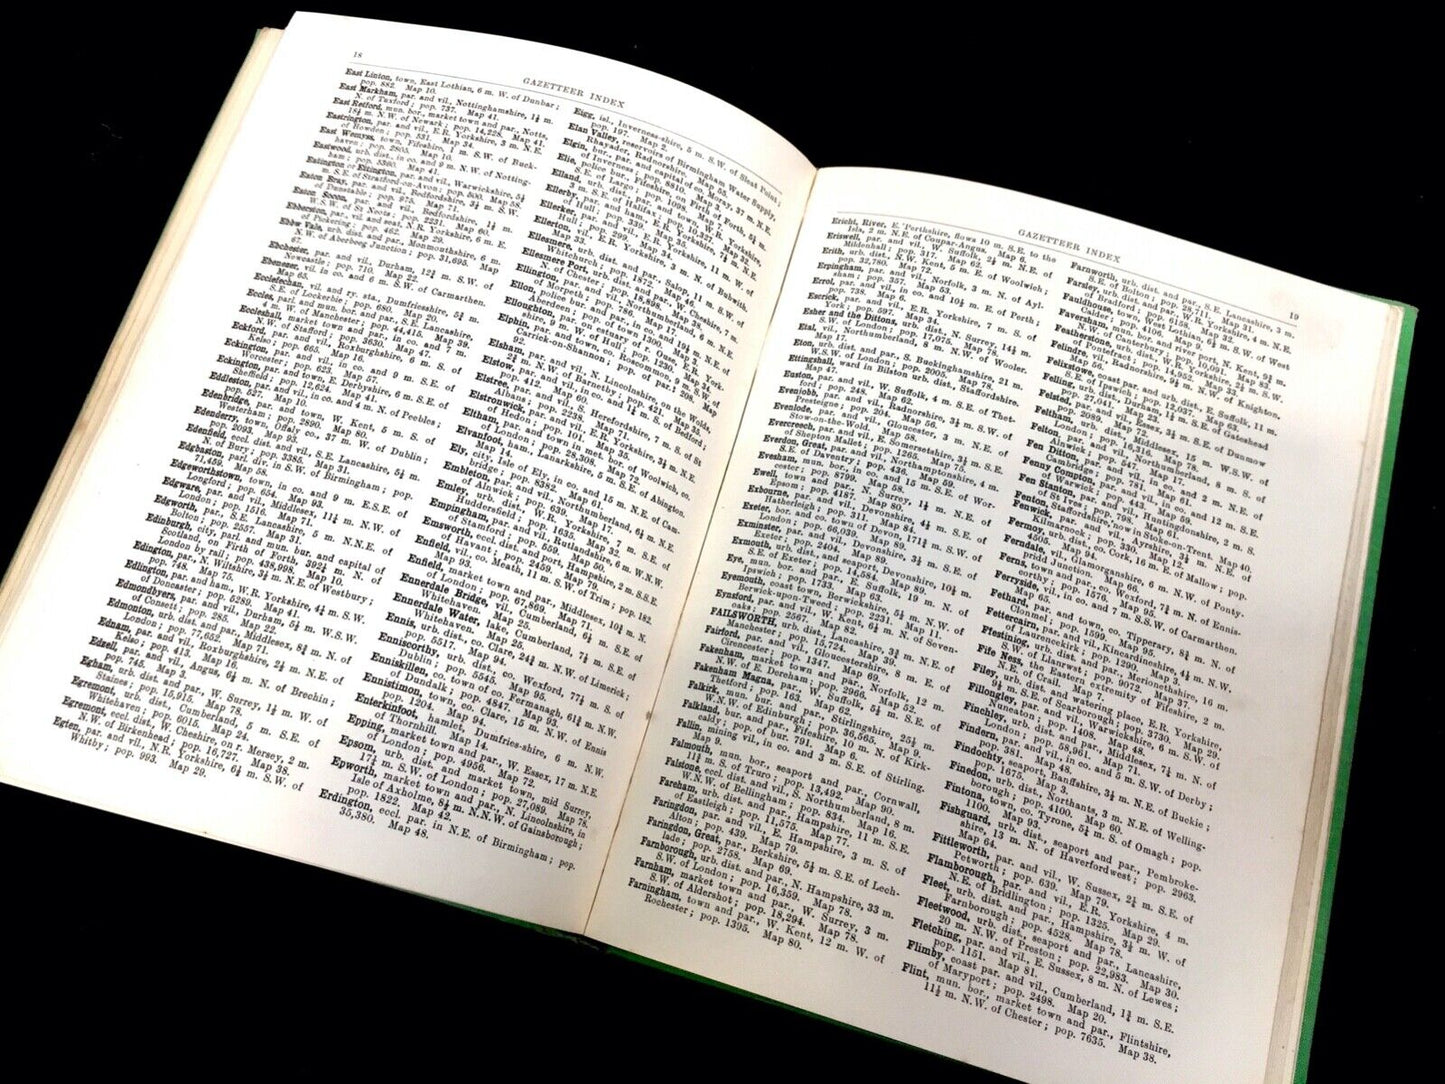 18
GAZETTEER INDEX
East Linton, town, East Lothian, 6 m. W. of Dunbar;
pop. 882. Map 10.
East Markham, par. and vil., Nottinghamshire, 1½ m.
N. of Tuxford; pop. 737. Map 41.
East Retford, mun. bor., market town and par., Notts,
18½ m. N.W. of Newark; pop. 14,228. Map 41.
Eastrington, par. and vil., E.R. Yorkshire, 3 m. N.E.
of Howden; pop. 531. Map 34.
East Wemyss, town, Fifeshire, 1 m. S.W. of Buck-
haven; pop. 2805. Map 10.
Eastwood, urb. dist., in co. and 9 m. N.W. of Notting-
ham; pop. 5360. Map 41.
Eatington or Ettington, par. and vil., Warwickshire, 5½
m. S.E. of Stratford-on-Avon; pop. 500. Map 58.
Eaton Bray, par. and vil., Bedfordshire, 3½ m. S.W.
of Dunstable; pop. 975. Map 71.
Eaton Socon, par. and vil., Bedfordshire, 1½ m.
W.S.W. of St Neots; pop. 2231. Map 60.
Ebberston, par., vil. and seat N.R. Yorkshire, 6 m. E.
of Pickering; pop. 462. Map 29.
Ebbw Vale, urb. dist. and par., Monmouthshire, 6 m.
N.W. of Aberbeeg Junction; pop. 31,695. Map
67.
Ebchester, par. and vil., Durham, 12¾ m. S.W. of
Newcastle; pop. 710. Map 22.
Ebenezer, vil. in co. and 6 m. S.W. of Carmarthen.
Map 65.
Ecclefechan, vil. and ry. sta., Dumfriesshire, 5½ m.
S.E. of Lockerbie; pop. 680. Map 20.
Eccles, parl. and mun. bor. and par., S.E. Lancashire,
W. of Manchester; pop. 44,415. Map 38.
Eccleshall, market town and par., in co. and 7 m.
N.W. of Stafford; pop. 3630. Map 47.
Eckford, par. and vil., Roxburghshire, 6 m. S. of
Kelso; pop. 665. Map 16.
Eckington, par. and vil., in co. and 9 m. S.E. of
Worcester; pop. 623. Map 57.
Eckington, par. and town, E. Derbyshire, 6 m. S.E. of
Sheffield; pop. 12,624. Map 41.
Eddleston, par. and vil., in co. and 4 m. N. of Peebles;
pop. 527. Map 10.
Edenbridge, par. and town, W. Kent, 5 m. S. of
Westerham; pop. 2890. Map 80.
Edenderry, town, Offaly co., 37 m. W. of Dublin;
pop. 2093. Map 93.
Edenfield, eccl. dist. and vil., S.E. Lancashire, 5½ m.
N. of Bury; pop. 3385. Map 31.
Edgbaston, parl. div. in S.W. of Birmingham; pop.
71,459. Map 48.
Edgeworthstown, town, in co. and 9 m. E.S.E. of
Longford; pop. 654. Map 93.
Edgware, par. and vil., Middlesex, 11½ m. N.W. of
London; pop. 1516. Map 71.
Edgworth, par., S.E. Lancashire, 5 m. N.N.E. of
Bolton; pop. 2537. Map 31.
Edinburgh, city, parl. and mun. bur. and capital of
Scotland, on Firth of Forth, 392½ m. N. of
London by rail; pop. 438,998. Map 10.
Edington, par. and vil., Wiltshire, 3½ m. N.E. of Westbury;
pop. 748. Map 75.
Edlington, par. and ham., W.R. Yorkshire, 4½ m. S.W.
of Doncaster; pop. 5289. Map 41.
Edmondbyers, par. and vil., Durham, 5½ m. W.S.W.
of Consett; pop. 285. Map 22.
Edmonton, urb. dist. and par., Middlesex, 8½ m. N. of
London; pop. 77,652. Map 71.
Ednam, par. and vil., Roxburghshire, 2½ m. N.E. of
Kelso; pop. 413. Map 16.
Edzell, par. and vil., Angus, 6½ m. N. of Brechin;
pop. 745. Map 3.
Egham, urb. dist. and par., W. Surrey, 1½ m. W. of
Staines; pop. 15,915. Map 78.
Egremont, urb. dist., Cumberland, 5 m. S.E. of
Whitehaven; pop. 6015. Map 24.
Egremont, eccl. dist., Cheshire, on r. Mersey, 2 m.
N.W. of Birkenhead; pop. 16,727. Map 38.
Egton, par. and vil., N.R. Yorkshire, 6½ m. S.W. of
Whitby; pop. 993. Map 29.
Eigg, isl., Inverness-shire, 5 m. S.W. of Sleat Point;
pop. 197. Map 2.
Elan Valley, reservoirs of Birmingham Water Supply,
Rhayader, Radnorshire. Map 55.
Elgin, bur., par. and capital of co. Moray, 37 m. N.E.
of Inverness; pop. 8810. Map 3.
Elie, police bur., Fifeshire, on Firth of Forth, 5½ m.
S.E. of Largo; pop. 1098. Map 7.
Elland, urb. dist., par. and town, W.R. Yorkshire,
3 m. S.E. of Halifax; pop. 10,327. Map 31.
Ellerby, par. and ham., E.R. Yorkshire, 7½ m. N.E.
of Hull; pop. 339. Map 35.
Ellerker, par. and vil., E.R. Yorkshire, 11 m. W. of
Hull; pop. 299. Map 34.
Ellerton, vil., E.R. Yorkshire, 3 m. N. of Bubwith.
Map 33.
Ellesmere, urb. dist. and par., Salop, 11 m. S. of
Whitchurch; pop. 1872. Map 46.
Ellesmere Port, urb. dist. and par., Cheshire, 7 m.
N. of Chester; pop. 18,898. Map 38.
Ellington, par. and vil., Northumberland, 7 m. N.E.
of Morpeth; pop. 786. Map 17.
Ellon, police bur. and par., in co. and 15 m. N. of
Aberdeen; pop. of bur. 1300. Map 4.
Elloughton, par. and vil., E.R. York-
shire, 9 m. W. of Hull; pop. Map 34.
Elphin, par. and town, co. Roscommon, 9 m. S.W. of
Carrick-on-Shannon; pop. of par. Map
92.
Elsham, par. and vil., N. Lincolnshire, on the Wolds,
2¾ m. N.W. of Barnetby; pop. 421. Map
Elstow, par. and vil., in co. and 1½ m. S. of Bedford;
pop. 412. Map 60.
Elstree, par. and vil., S. Herefordshire, 7 m. S. of St
Albans; pop. 2238. Map 71.
Elstronwick, par. and vil., E.R. Yorkshire, 3½ m. N.E.
of Hedon; pop. 101. Map 35.
Eltham, par. and town in met. bor. of Woolwich, co.
of London; pop. 28,308. Map 72.
Elvanfoot, ham., Lanarkshire, 5 m. S.E. of Abington.
Map 14.
Ely, city, Isle of Ely, in co. and 15 m. N.E. of Cam-
bridge; pop. 8382. Map 61.
Embleton, par. and vil., Northumberland, 6½ m. N.E.
of Alnwick; pop. 639. Map 17.
Emley, urb. dist. and par., W.R. Yorkshire, 7 m. S.E. of
Huddersfield; pop. 1635. Map 32.
Empingham, par. and vil., Rutlandshire, 6 m. W.N.W.
of Stamford; pop. 559. Map 50.
Emsworth, eccl. dist. and port, Hampshire, 2 m. S.S.E.
of Havant; pop. 2459. Map 79.
Enfield, vil., co. Meath, 11 m. S.W. of Trim; pop. 182.
Enfield, market town and par., Middlesex, 10¾ m. N.
of London; pop. 67,869. Map 71.
Ennerdale Bridge, vil., Cumberland, 6½ m. E. of
Whitehaven. Map 25.
Ennerdale Water, lake, Cumberland, 7½ m. S.E. of
Whitehaven. Map 25.
Ennis, urb. dist., co. Clare, 24¾ m. N.W. of Limerick;
pop. 5517. Map 94.
Enniscorthy, urb. dist., co. Wexford, 77½ m. S. of
Dublin; pop. 5545. Map 95.
Enniskillen, co. town of co. Fermanagh, 61½ m. N.W.
of Dundalk; pop. 4847. Map 93.
Ennistimon, town, co. Clare, 15 m. W.N.W. of Ennis;
pop. 1204. Map 94.
Enterkinfoot, hamlet, Dumfries-shire, 6 m. N.W.
of Thornhill. Map 14.
Epping, market town and par., W. Essex, 17 m. N.E.
of London; pop. 4956. Map 72.
Epsom, urb. dist. and market town, mid Surrey,
17½ m. S.W. of London; pop. 27,089. Map 78.
Epworth, market town and par., N. Lincolnshire, in
Isle of Axholme, 8½ m. N.N.W. of Gainsborough;
pop. 1822. Map 42.
Erdington, eccl. par. in N.E. of Birmingham; pop.
35,380. Map 48.
GAZETTEER INDEX
19
Ericht, River, E. Perthshire, flows 10 m. S.E. to the
Isla, 2 m. N.E. of Coupar-Angus. Map 6.
Eriswell, par. and vil., W. Suffolk, 2½ m. N.E. of
Mildenhall; pop. 317. Map 62.
Erith, urb. dist., N.W. Kent, 5 m. E. of Woolwich;
pop. 32,780. Map 72.
Erpingham, par. and vil., Norfolk, 3 m. N. of Ayl-
sham; pop. 357. Map 53.
Errol, par. and vil., in co. and 10½ m. E. of Perth;
pop. 738. Map 6.
Escrick, par. and vil., E.R. Yorkshire, 7 m. S. of
York; pop. 597. Map 33.
Esher and the Dittons, urb. dist., N. Surrey, 14¾ m.
S.W. of London; pop. 17,075. Map 78.
Etal, vil., Northumberland, 8 m. N.W. of Wooler.
Map 17.
Eton, urb. dist. and par., S. Buckinghamshire, 21 m.
W.S.W. of London; pop. 2005. Map 78.
Ettingshall, ward in Bilston urb. dist., Staffordshire.
Map 47.
Euston, par. and vil., W. Suffolk, 4 m. S.E. of Thet-
ford; pop. 248. Map 62.
Evenjobb, par. and vil., Radnorshire, 3½ m. S.W. of
Presteigne; pop. 204. Map 56.
Evenlode, par. and vil., Gloucester, 3 m. N.E. of
Stow-on-the-Wold. Map 58.
Evercreech, par. and vil., E. Somersetshire, 3¾ m. S.E.
of Shepton Mallet; pop. 1265. Map 75.
Everdon, Great, par. and vil., Northamptonshire, 4 m.
S.E. of Daventry; pop. 436. Map 59.
Evesham, mun. bor., in co. and 15 m. S.E. of Wor-
cester; pop. 8799. Map 58.
Ewell, town and par., N. Surrey, 1¼ m. N.E. of
Epsom; pop. 4187. Map 78.
Exbourne, par. and vil., Devonshire, 4½ m. S.E. of
Hatherleigh; pop. 311. Map 84.
Exeter, bor. and co. town of Devon, 171½ m. S.W. of
London; pop. 66,039. Map 89.
Exminster, par. and vil., Devonshire, 3½ m. S.E. of
Exeter; pop. 2404. Map 89.
Exmouth, urb. dist. and seaport, Devonshire, 10½ m.
S.E. of Exeter; pop. 14,584. Map 89.
Eye, mun. bor. and par., E. Suffolk, 19 m. N. of
Ipswich; pop. 1733. Map 63.
Eyemouth, coast town, Berwickshire, 5½ m. N.W. of
Berwick-upon-Tweed; pop. 2231. Map 11.
Eynsford, par. and vil., W. Kent, 6½ m. S.E. of Seven-
oaks; pop. 2567. Map 82.
FAILSWORTH, urb. dist., Lancashire, 3½ m. N.E. of
Manchester; pop. 15,724. Map 39.
Fairford, par. and vil., Gloucestershire, 8 m. E. of
Cirencester; pop. 1347. Map 69.
Fakenham, market town and par., Norfolk, 12 m.
N.W. of E. Dereham; pop. 2966. Map 52.
Fakenham Magna, par. and vil., W. Suffolk, 5½ m. S.E. of
Thetford; pop. 163. Map 62.
Falkirk, mun. bur. and par., Stirlingshire, 25½ m.
W.N.W. of Edinburgh; pop. 36,565. Map 9.
Falkland, bur. and par., Fifeshire, 10 m. N. of Kirk-
caldy; pop. of bur. 791. Map 6.
Fallin, mining vil., in co. and 3 m. S.E. of Stirling.
Map 9.
Falmouth, mun. bor., seaport and par., Cornwall,
11¼ m. S. of Truro; pop. 13,492. Map 90.
Falstone, eccl. dist. and vil., S. Northumberland, 8 m.
W.N.W. of Bellingham; pop. 834. Map 16.
Fareham, urb. dist. and par., Hampshire, 11 m. S.E.
of Eastleigh; pop. 11,575. Map 77.
Faringdon, par. and vil., E. Hampshire, 3 m. S. of
Alton; pop. 439. Map 79.
Faringdon, Great, par., Berkshire, 5½ m. S.E. of Lech-
lade; pop. 2758. Map 69.
Farnborough, urb. dist. and par., N. Hampshire, 33 m.
S.W. of London; pop. 16,359. Map 78.
Farnham, market town and par., W. Surrey, 3 m.
S.W. of Aldershot; pop. 18,294. Map 78.
Farningham, town and par., W. Kent, 12 m. W. of
Rochester; pop. 1395. Map 80.
Farnworth, urb. dist. and par., S.E. Lancashire, 3 m.
S.E. of Bolton; pop. 28,711. Map 31.
Farsley, urb. dist. and par., W.R. Yorkshire, 4 m. N.E.
of Bradford; pop. 6158. Map 31.
Fauldhouse, par., West Lothian, 6½ m. S.W. of West
Calder; pop. 4106. Map 9.
Faversham, mun. bor. and river port, N. Kent, 9½ m.
N.W. of Canterbury; pop. 10,091. Map 83.
Featherstone, urb. dist. and par., W.R. Yorkshire, 2½ m.
W. of Pontefract; pop. 14,952. Map 32.
Felindre, vil., Radnorshire, 9½ m. N.W. of Knighton.
Map 56.
Felixstowe, coast par. and urb. dist., E. Suffolk, 11 m.
S.E. of Ipswich; pop. 12,037. Map 63.
Felling, urb. dist., Durham, 1½ m. S.E. of Gateshead;
pop. 27,041. Map 23.
Felsted, par. and vil., Essex, 3½ m. S.E. of Dunmow;
pop. Map
Feltham, urb. dist., Middlesex, 15 m. W.S.W. of
London; pop. 16,316. Map 78.
Felton, par. and vil., Northumberland, 8 m. S. of
Alnwick; pop. 547. Map 17.
Fen Ditton, par. and vil., in co. and 2 m. N.E. of
Cambridge; pop. Map 61.
Fenny Compton, par. and vil., in co. and 12 m. S.E.
of Warwick; pop. Map 59.
Fen Stanton, par. and vil., Huntingdonshire, 2 m. S.
of St Ives; pop. 798. Map 61.
Fenton, par., Staffordshire, now in Stoke-on-Trent. Map 40.
Fenwick, par. and vil., Ayrshire, 4 m. N.E. of
Kilmarnock; pop. 330. Map 8.
Fermoy, market town and urb. dist., co. Cork, 16 m. E. of Mallow; pop.
4505. Map 94.
Ferndale, town, Glamorganshire, 6 m. N.W. of Ponty-
pridd Junction. Map 66.
Ferns, town and par., co. Wexford, 7¾ m. N. of Ennis-
corthy; pop. 1576. Map 95.
Ferryside, vil., in co. and 7 m. S.S.W. of Carmarthen.
Map 65.
Fethard, par. and town, co. Tipperary, 8½ m. N. of
Clonmel; pop. 1599. Map 95.
Fettercairn, par. and vil., Kincardineshire, 4¼ m. N.W.
of Laurencekirk; pop. 1290. Map 3.
Ffestiniog, urb. dist. and par., Merionethshire, 16 m.
S.W. of Llanrwst; pop. 9072. Map 37.
Fife Ness, the Eastern extremity of Fifeshire, 2 m.
N.E. of Crail. Map 7.
Filey, urb. dist. and watering place, E.R. Yorkshire,
9½ m. S.E. of Scarborough; pop. 3730. Map 29.
Fillongley, par. and vil., Warwickshire, 6 m. S.W. of
Nuneaton; pop. 1408. Map 48.
Finchley, urb. dist. and par., Middlesex, 7½ m. N. of
London; pop. 58,961. Map 71.
Findern, par. and vil., in co. and 5 m. S.W. of Derby;
pop. 381. Map 48.
Findochty, seaport, Banffshire, 3½ m. N.E. of Buckie;
pop. 1675. Map 3.
Finedon, urb. dist., Northants, 3 m. N.E. of Welling-
borough; pop. 4100. Map 60.
Fintona, town, co. Tyrone, 5½ m. S. of Omagh; pop.
1100. Map 93.
Fishguard, urb. dist., seaport and par., Pembroke-
shire, 13 m. N. of Haverfordwest; pop. 2963.
Map 64.
Fittleworth, par. and vil., W. Sussex, 2½ m. S.E. of
Petworth; pop. 639. Map 79.
Flamborough, par. and vil., E.R. Yorkshire, 4 m.
N.E. of Bridlington; pop. 1325. Map 29.
Fleet, urb. dist. and par., Hampshire, 3½ m. W. of
Farnborough; pop. 4528. Map 78.
Fleetwood, urb. dist., seaport and par., Lancashire,
20 m. N.W. of Preston; pop. 22,983. Map 30.
Fletching, par. and vil., E. Sussex, 8 m. N. of Lewes;
pop. 1151. Map 81.
Flimby, coast par. and vil., Cumberland, 1¾ m. S.E.
of Maryport; pop. 2498. Map 20.
Flint, mun. bor., market town and par., Flintshire,
11¾ m. N.W. of Chester; pop. 7635. Map 38.